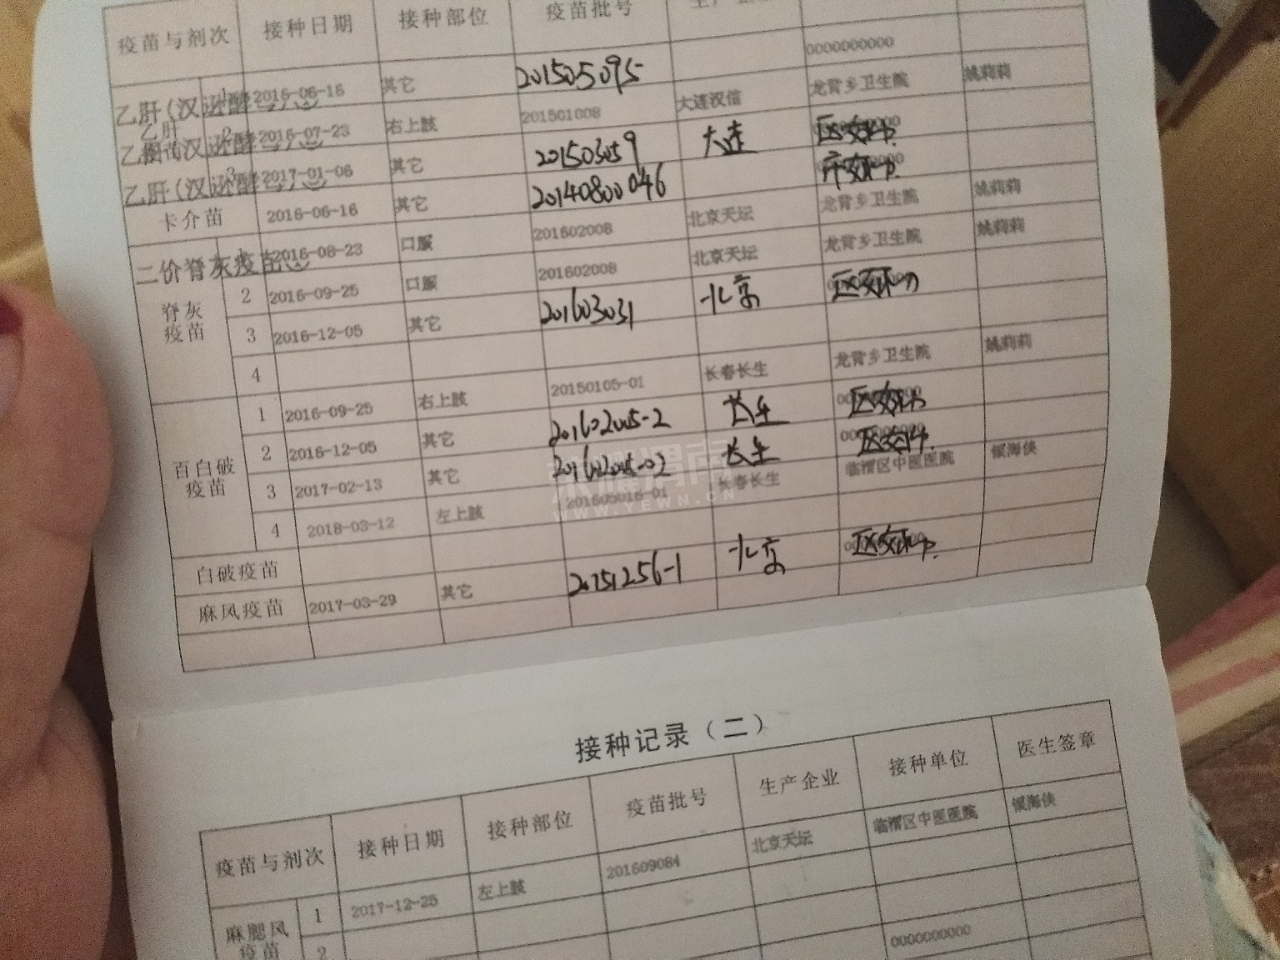 疫苗与剂次 接种日期 接种部位 疫苗批号
0000000000
乙肝(汉逊酵母) 1 2016-06-16 其它 201505095
乙肝疫苗 2 2016-07-23 右上肢 201501008 大连汉信 龙背乡卫生院 姚莉莉
乙肝(汉逊酵母) 3 2017-01-06 其它 201503059 大连
卡介苗 2016-06-16 其它 20140800046
二价脊灰疫苗 2016-08-23 口服 201602008 北京天坛 龙背乡卫生院 姚莉莉
脊灰疫苗 2 2016-09-25 口服 201602008 北京天坛 龙背乡卫生院 姚莉莉
3 2016-12-05 其它 201603031 北京
4
百白破疫苗 1 2016-09-25 右上肢 20150105-01 长春长生 龙背乡卫生院 姚莉莉
2 2016-12-05 其它 201602005-2 长生
3 2017-02-13 其它 长生
4 2018-03-12 左上肢 201605016-01 长春长生 临渭区中医医院 银海侠
白破疫苗
麻风疫苗 2017-03-29 其它 20151256-1 北京
荣耀渭南
WWW.YEWN.CN
接种记录(二)
疫苗与剂次 接种日期 接种部位 疫苗批号 生产企业 接种单位 医生签章
麻腮风疫苗 1 2017-12-25 左上肢 201609084 北京天坛 临渭区中医医院 银海侠
2
0000000000